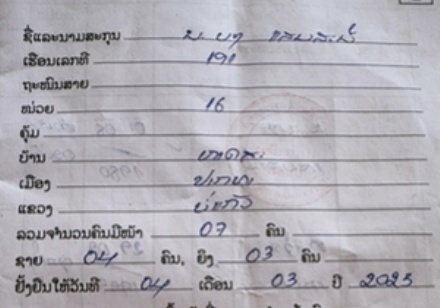 ຊື່ແລະນາມສະກຸນ
ເຮືອນເລກທີ 191
ຖະໜົນສາຍ
ໜ່ວຍ 16
ຄຸ້ມ
ບ້ານ
ເມືອງ ປາກທາ
ແຂວງ ບໍ່ແກ້ວ
ລວມຈຳນວນຄົນມີໜ້າ 07 ຄົນ
ຊາຍ 04 ຄົນ, ຍິງ 03 ຄົນ
ຢັ້ງຢືນໃຫ້ວັນທີ 04 ເດືອນ 03 ປີ 2023